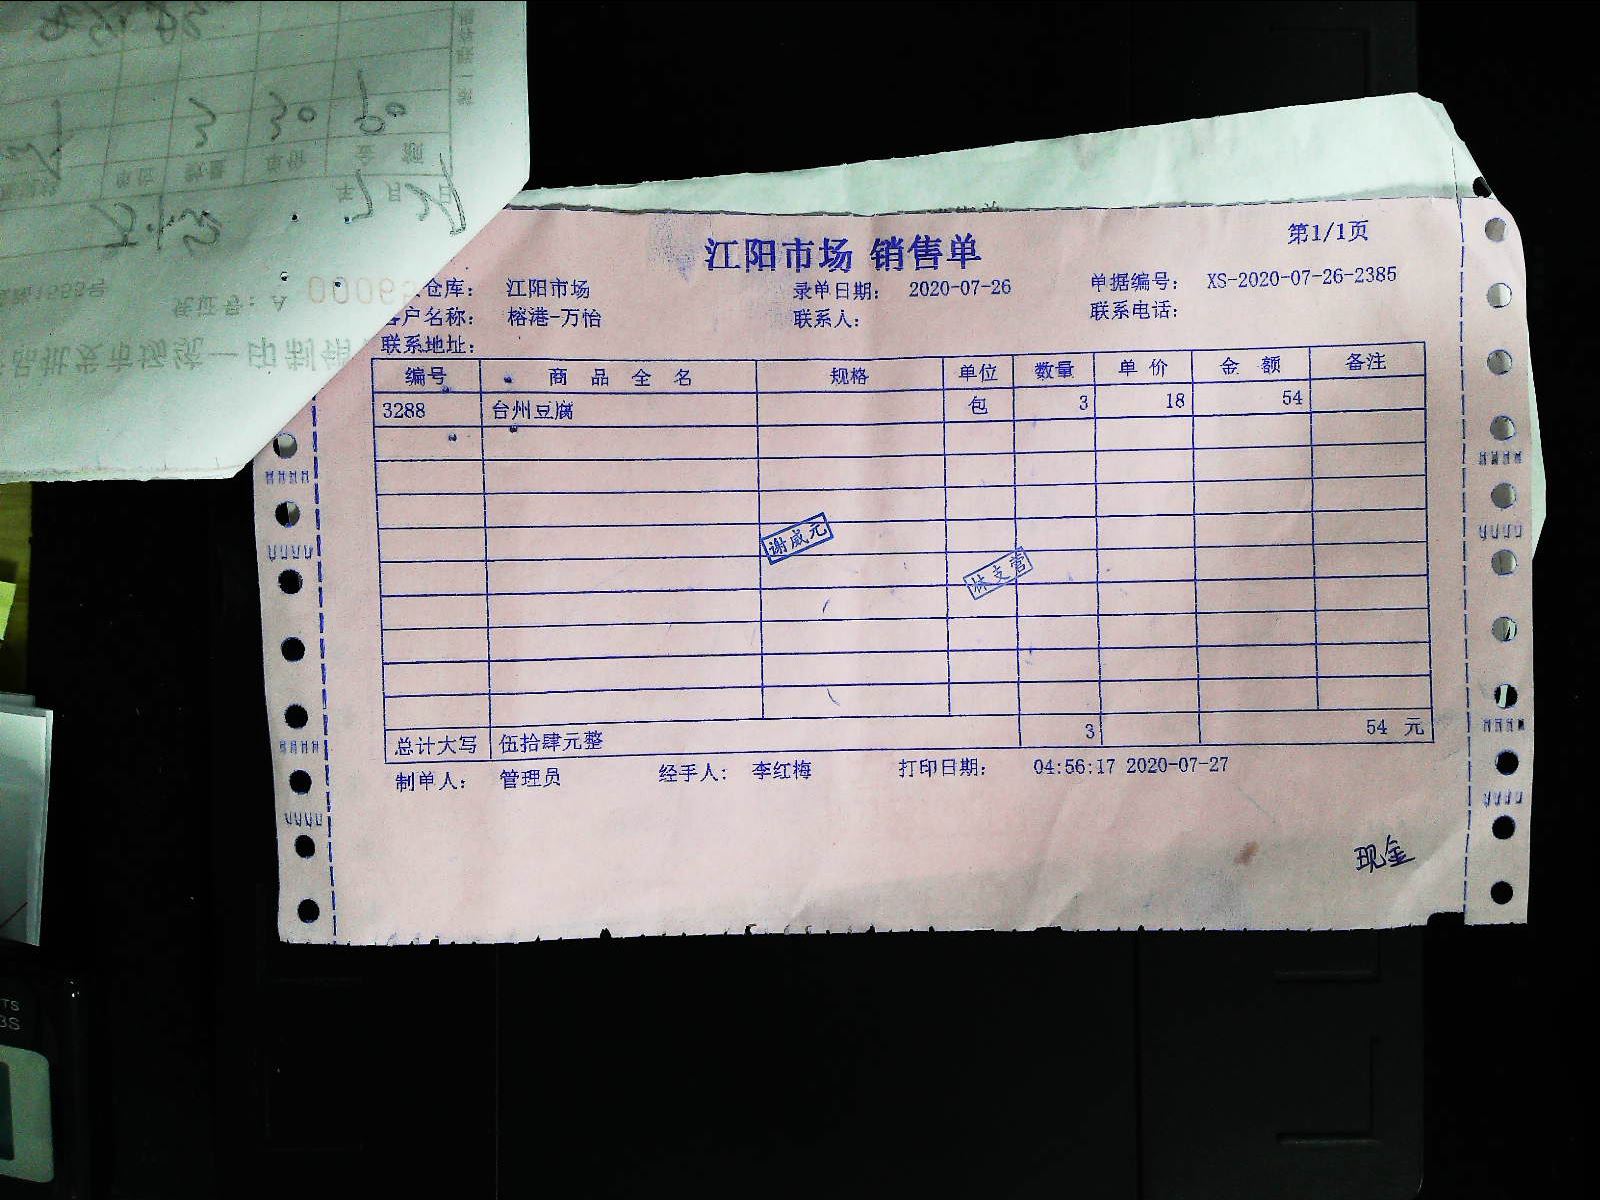 江阳市场 销售单
第1/1页
仓库： 江阳市场 录单日期： 2020-07-26 单据编号： XS-2020-07-26-2385
客户名称： 榕港-万怡 联系人： 联系电话：
联系地址：
编号 商品全名 规格 单位 数量 单价 金额 备注
3288 台州豆腐 包 3 18 54
谢威元
林支营
总计大写 伍拾肆元整 3 54 元
制单人： 管理员 经手人： 李红梅 打印日期： 04:56:17 2020-07-27
现金
凭证号：A 00065
品批发市场统一印制销
年 月 日
单位 数量 单价 金额
3 30